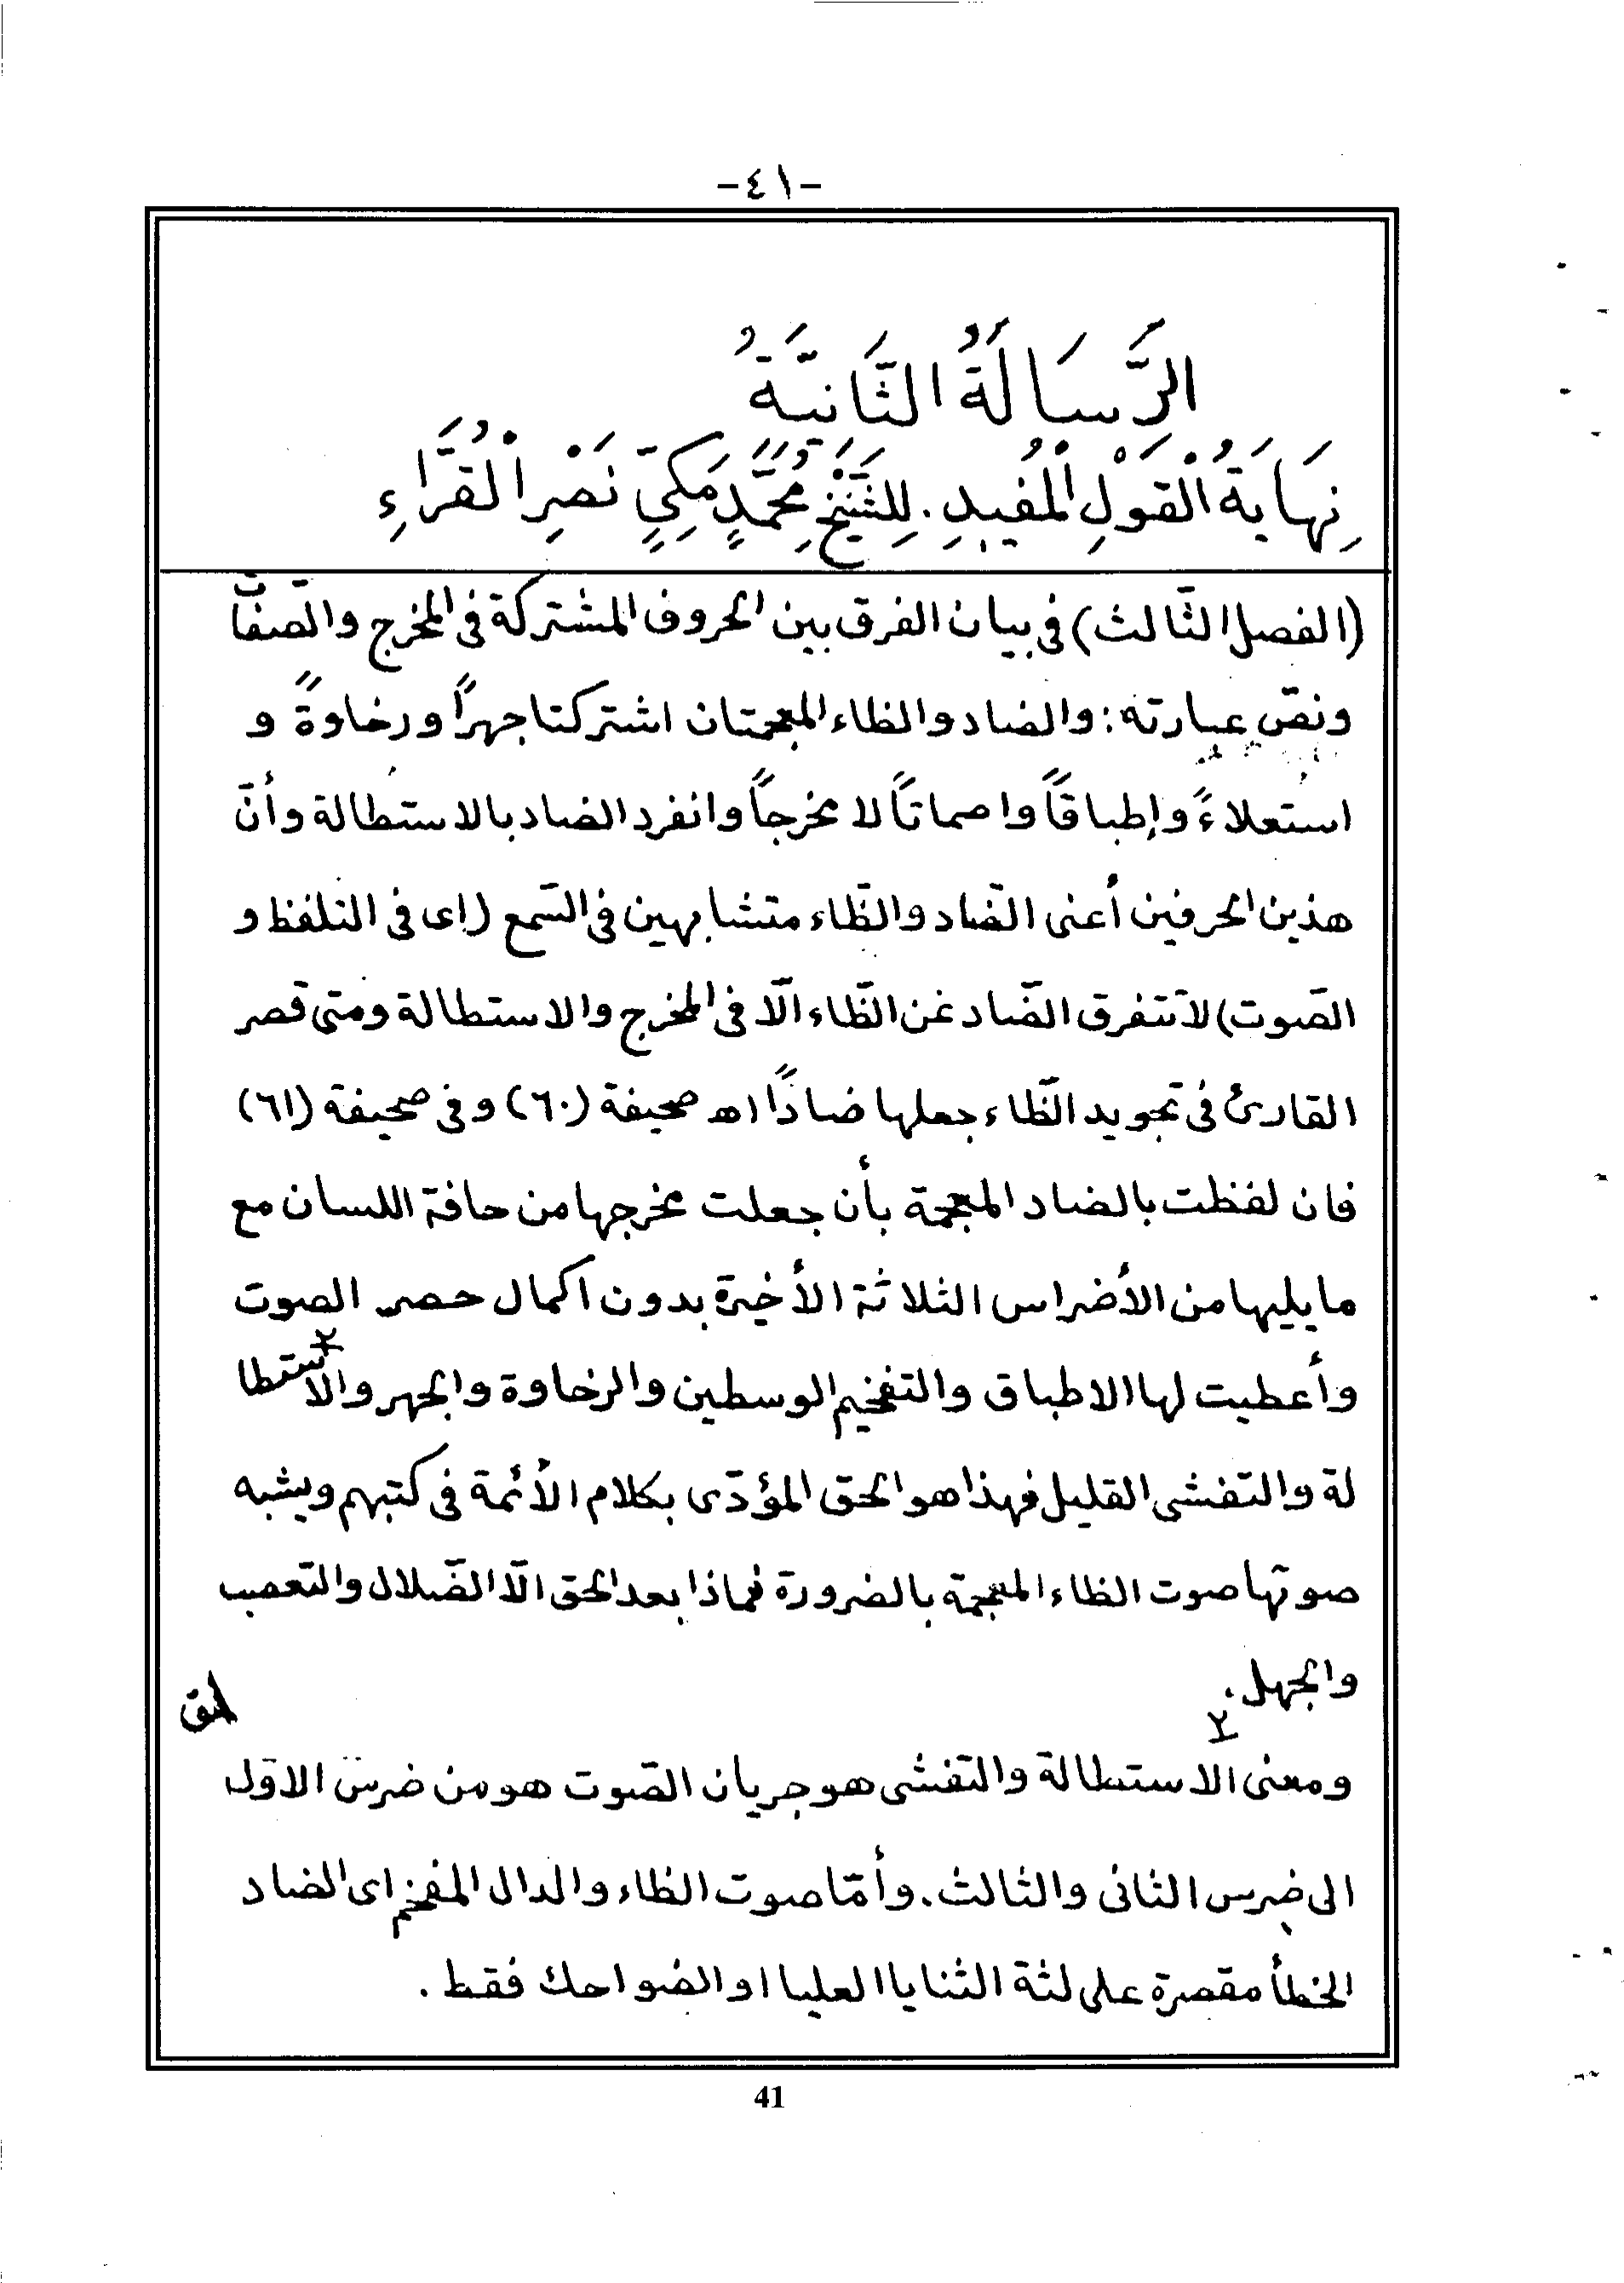 -٤١-
الرَّسَالَةُ الثَّانِيَّةُ
نِهَايَةُ الْقَوْلِ الْمُفِيدِ. لِلشَّيْخِ مُحَمَّدٍ مَكِّيٍّ نَصْرِ الْقُرَّاءِ
(الفصل الثّالث) فى بيان الفرق بين الحروف المشتركة فى المخرج والصّفات
ونصّ عبارته: والضاد والظاء المعجمتان اشتركتا جهراً ورخاوةً و
استعلاءً وإطباقاً واصماتاً لا مخرجاً وانفرد الضاد بالاستطالة وأنّ
هذين الحرفين أعنى الضّاد والظّاء متشابهين فى السّمع (اى فى التلفظ و
الصّوت) لا تتفرق الضّاد عن الظّاء الّا فى المخرج والاستطالة ومتى قصر
القارئ فى تجويد الظّاء جعلها ضاداً اھ صحيفة (٦٠) وفى صحيفة (٦١)
فان لفظت بالضاد المعجمة بأن جعلت مخرجها من حافة اللسان مع
ما يليها من الأضراس الثلاثة الأخيرة بدون اكمال حصر الصوت
وأعطيت لها الاطباق والتفخيم الوسطين والرخاوة والجهر والاستطا ٢
لة والتفشى القليل فهذا هو الحق المؤدّى بكلام الأئمة فى كتبهم ويشبه
صوتها صوت الظاء المعجمة بالضرورة فماذا بعد الحق الّا الضّلال والتّعصب
والجهل.
٢
ومعنى الاستطالة والتّفشى هو جريان الصّوت هو من ضرس الاوّل
الى ضرس الثانى والثالث. وأمّا صوت الظاء والدال المفخم اى الضاد
الخطأ مقصرة على لثة الثنايا العليا او الضواحك فقط.
41